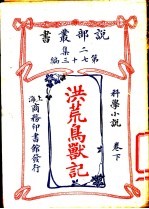 說部叢書
二集
第七十三編
科學小說
洪荒鳥獸記
卷下
上海
商務印書館發行